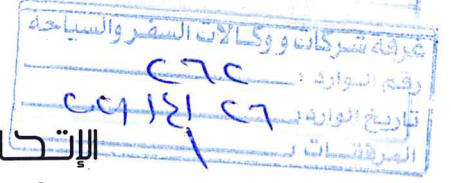 غرفة شركات ووكالات السفر والسياحة
رقم الوارد : ٢٦٢
تاريخ الوارد
المرفقات : ١
الإتحا